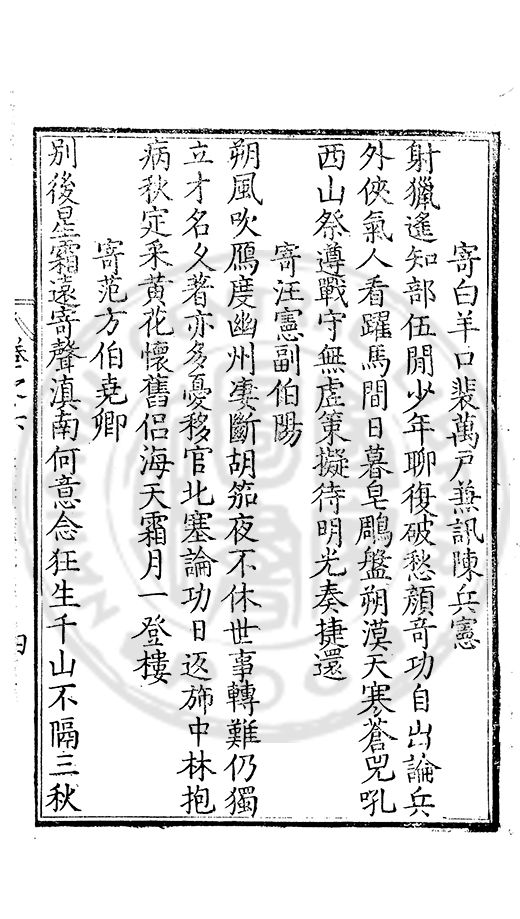 寄白羊口裴萬戶兼訊陳兵憲
射獵遙知部伍閒少年聊復破愁顏奇功自出論兵
外俠氣人看躍馬間日暮皂鵰盤朔漠天寒蒼兕吼
西山祭遵戰守無虛策擬待明光奏捷還
寄汪憲副伯陽
朔風吹鴈度幽州凄斷胡笳夜不休世事轉難仍獨
立才名久著亦多憂移官北塞論功日返斾中林抱
病秋定采黃花懷舊侶海天霜月一登樓
寄范方伯堯卿
別後星霜遠寄聲滇南何意念狂生千山不隔三秋
卷之六
四